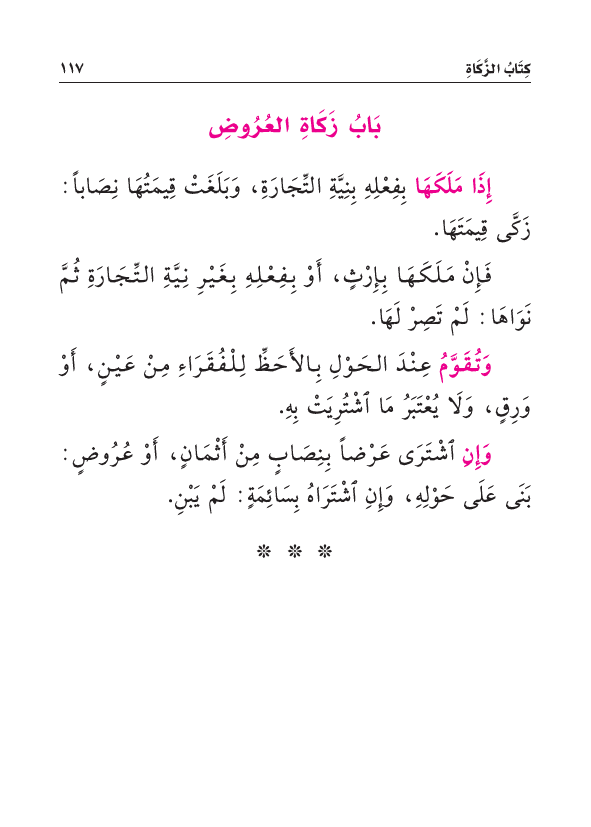 كِتَابُ الزَّكَاةِ ١١٧
بَابُ زَكَاةِ العُرُوضِ
إِذَا مَلَكَهَا بِفِعْلِهِ بِنِيَّةِ التِّجَارَةِ، وَبَلَغَتْ قِيمَتُهَا نِصَاباً:
زَكَّى قِيمَتَهَا.
فَإِنْ مَلَكَهَا بِإِرْثٍ، أَوْ بِفِعْلِهِ بِغَيْرِ نِيَّةِ التِّجَارَةِ ثُمَّ
نَوَاهَا: لَمْ تَصِرْ لَهَا.
وَتُقَوَّمُ عِنْدَ الحَوْلِ بِالأَحَظِّ لِلْفُقَرَاءِ مِنْ عَيْنٍ، أَوْ
وَرِقٍ، وَلَا يُعْتَبَرُ مَا ٱشْتُرِيَتْ بِهِ.
وَإِنِ ٱشْتَرَى عَرْضاً بِنِصَابٍ مِنْ أَثْمَانٍ، أَوْ عُرُوضٍ:
بَنَى عَلَى حَوْلِهِ، وَإِنِ ٱشْتَرَاهُ بِسَائِمَةٍ: لَمْ يَبْنِ.